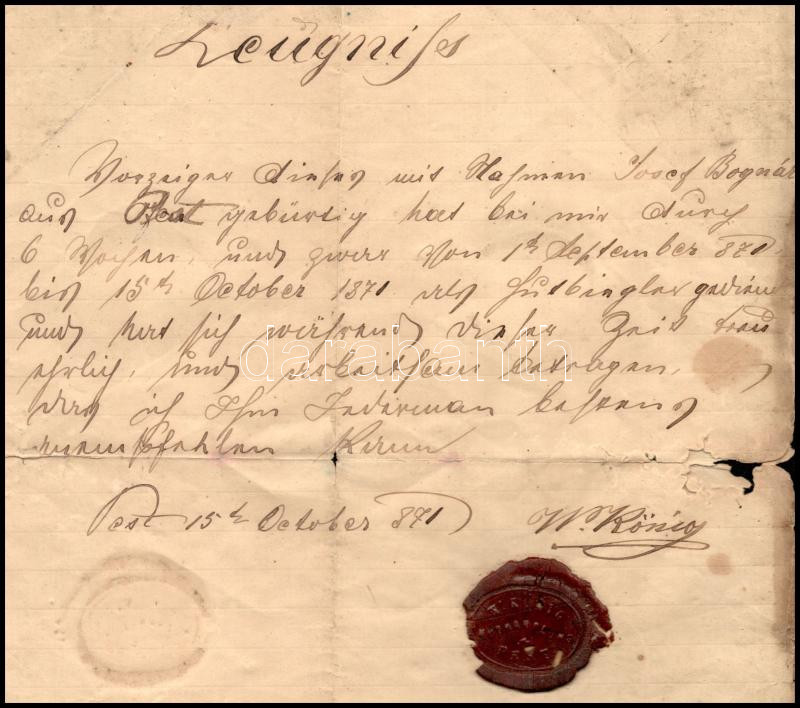 Zeugnißes
Vorzeiger dieses mit Nahmen Josef Bognár
aus Pest gebürtig hat bei mir durch
6 Wochen, und zwar von 1ten September 871.
bis 15ten October 1871 als Hutbiegler gedien
und hat sich während dieser Zeit treu
ehrlich, und arbeitsam betragen,
das ich Ihm Jederman bestens
anempfehlen kann
Pest 15te October 871 W. König
darabanth
W. KÖNIG
PEST